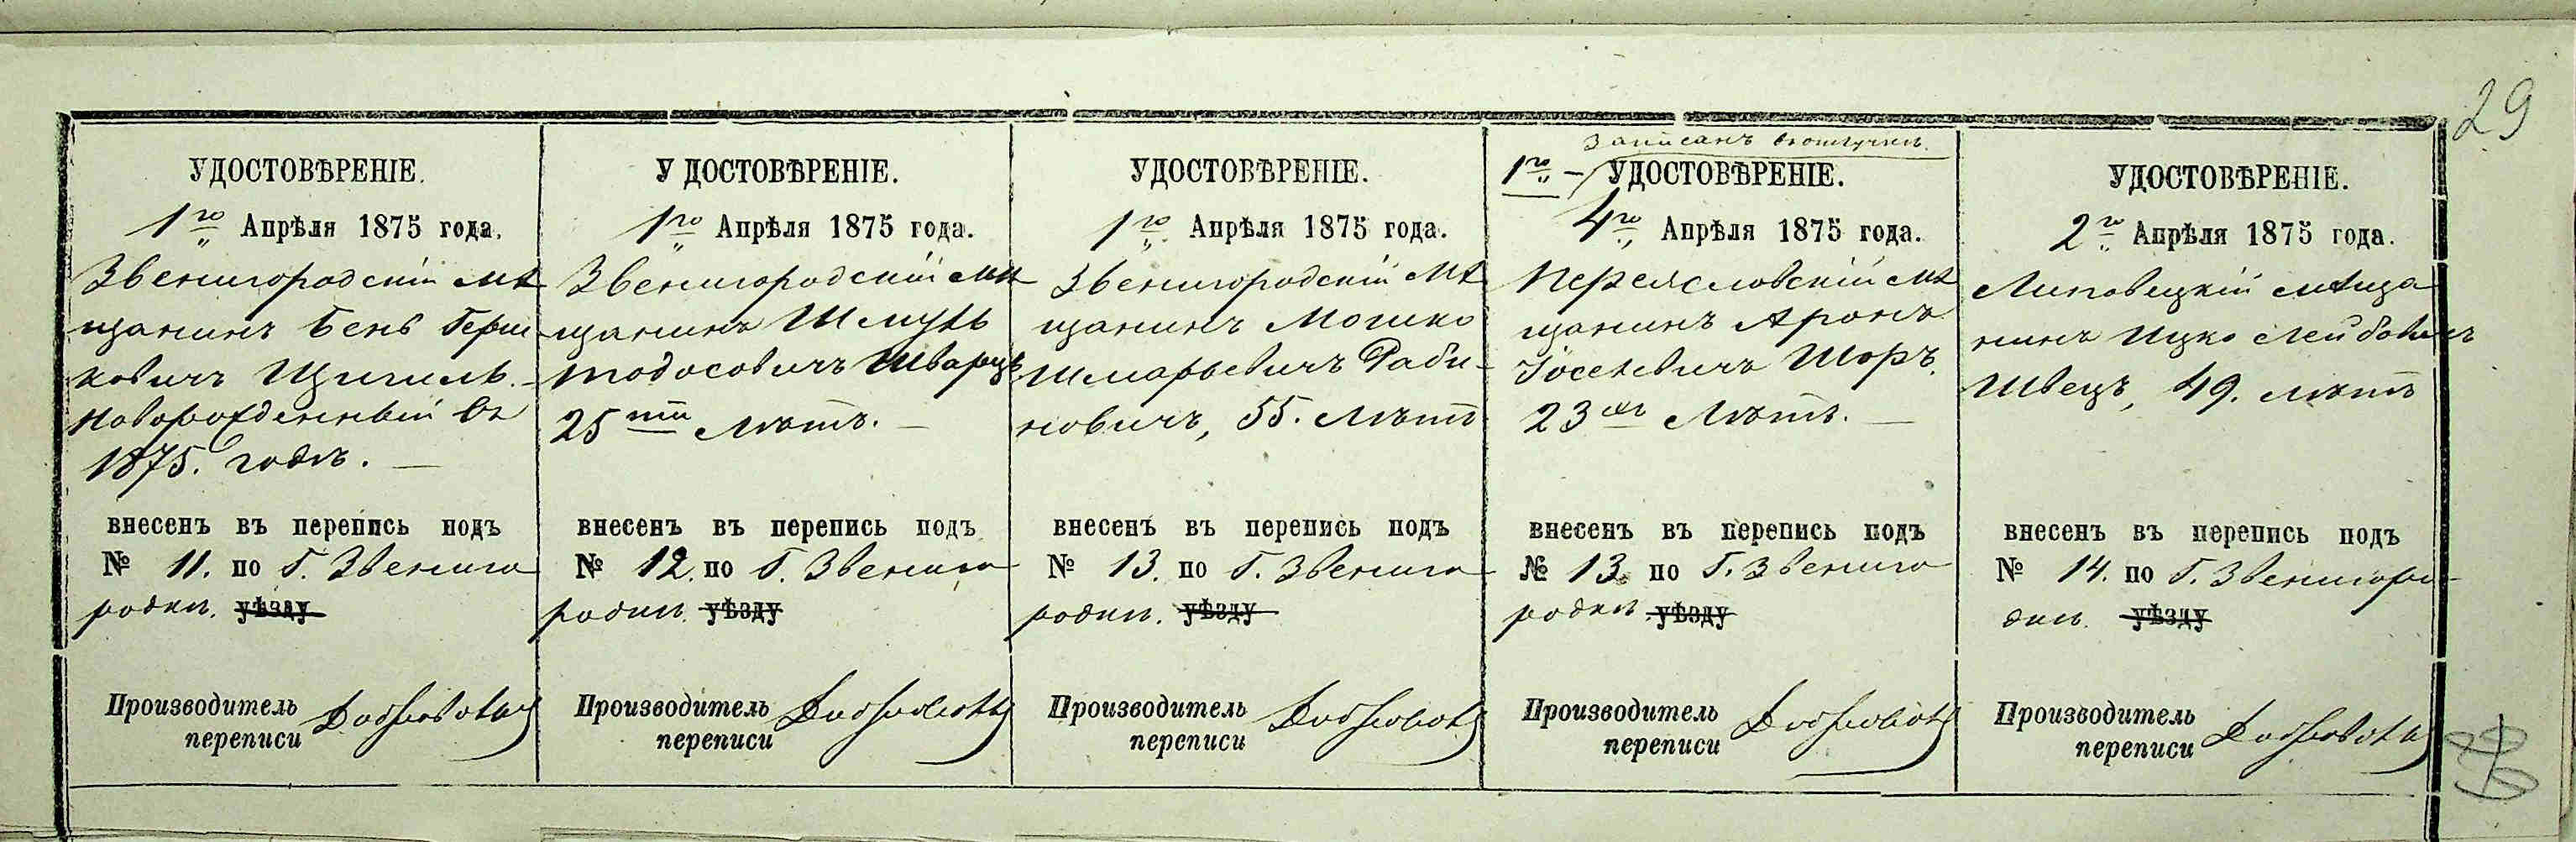 29
УДОСТОВѢРЕНІЕ.
1го Апрѣля 1875 года.
Звенигородскій мѣ
щанинъ Бень Герш
ковичъ Щигиль.
Новорожденный въ
1875. годѣ.
внесенъ въ перепись подъ
№ 11. по Г. Звениго
родкѣ. уѣзду
Производитель
переписи
УДОСТОВѢРЕНІЕ.
1го Апрѣля 1875 года.
Звенигородскій мѣ
щанинъ Шмуль
Тодосовичъ Шварцъ
25ти лѣтъ.
внесенъ въ перепись подъ
№ 12. по Г. Звениго
родкѣ. уѣзду
Производитель
переписи
УДОСТОВѢРЕНІЕ.
1го Апрѣля 1875 года.
Звенигородскій мѣ
щанинъ Мошко
Шмарьевичъ Раби-
новичъ, 55. лѣтъ
внесенъ въ перепись подъ
№ 13. по Г. Звениго
родкѣ. уѣзду
Производитель
переписи
Записанъ
1го – УДОСТОВѢРЕНІЕ.
4го Апрѣля 1875 года.
Переясловскій мѣ
щанинъ Аронъ
Іосевичъ Шоръ.
23хъ лѣтъ.
внесенъ въ перепись подъ
№ 13. по Г. Звениго
родкѣ. уѣзду
Производитель
переписи
УДОСТОВѢРЕНІЕ.
2го Апрѣля 1875 года.
Липовецкій мѣща
нинъ Ицко Лейбовичъ
Швецъ, 49. лѣтъ
внесенъ въ перепись подъ
№ 14. по Г. Звенигоро-
дкѣ. уѣзду
Производитель
переписи